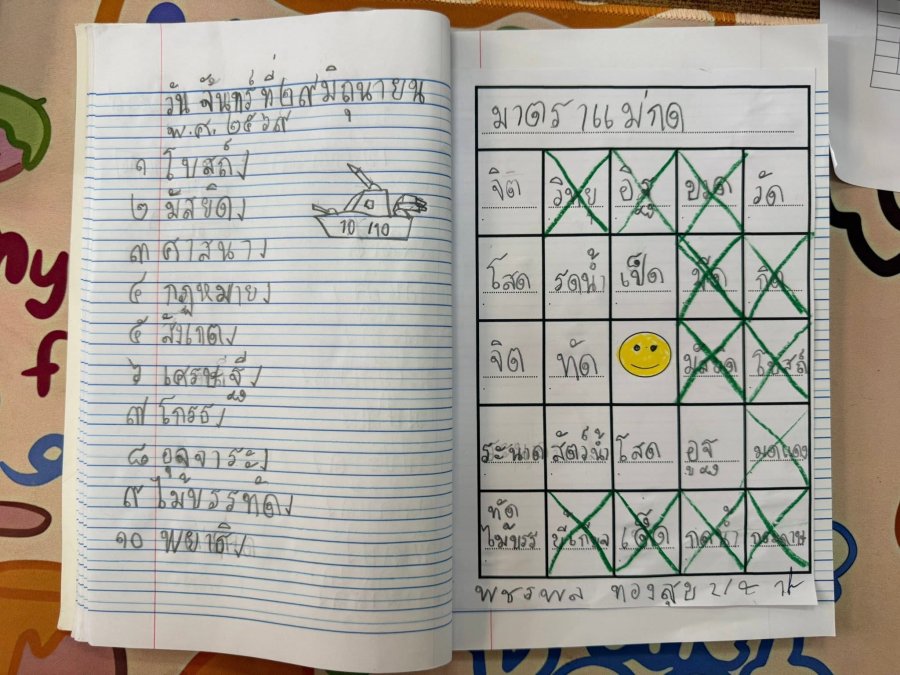 วัน จันทร์ ที่ ๒๙ มิถุนายน
พ.ศ. ๒๕๖๙
๑ โบสถ์
๒ มัสยิด
๓ ศาสนา
๔ กฎหมาย
๕ สังเกต
๖ เศรษฐี
๗ โกรธ
๘ อุจจาระ
๙ ไม้บรรทัด
๑๐ พยาธิ
10 /10
มาตราแม่กด
จิต อิฐ วัด
โสด รัดน้ำ เป็ด กิด
จิต ทัด มัสยิด โบสถ์
ระนาด สัตว์น้ำ โสด อูฐ มดแดง
ทัด
ไม้บรร กดน้ำ กระดาษ
พชรพล ทองสุข
my
f